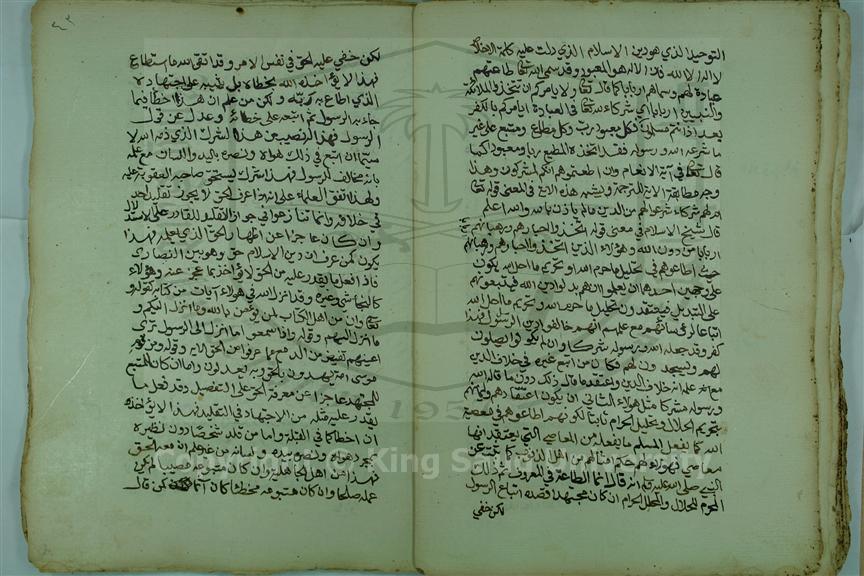 التوحيد الذي هو دين الاسلام الذي دلت عليه كلمة الاخلاص
لا اله الا الله فان الاله هو المعبود وقد سمى الله تعالى طاعتهم
عبادة لهم وسماهم اربابا كما قال تعالى ولا يامركم ان تتخذوا الملائكة
والنبيين اربابا اي شركاء لله تعالى في العبادة ايامركم بالكفر
بعد اذ انتم مسلمون فكل معبود رب وكل مطاع ومتبع على غير
ما شرعه الله ورسوله فقد اتخذه المطيع ربا ومعبودا كما
قال تعالى في آية الانعام وان اطعتموهم انكم لمشركون وهذا
وجه مطابقة الاية للترجمة ويشبه هذه الاية في المعنى قوله تعالى
ام لهم شركاء شرعوا لهم من الدين ما لم ياذن به الله والله اعلم
قال شيخ الاسلام في معنى قوله اتخذوا احبارهم ورهبانهم
اربابا من دون الله وهؤلاء الذين اتخذوا احبارهم ورهبانهم
حيث اطاعوهم في تحليل ما حرم الله وتحريم ما احل الله يكون
على وجهين احدهما ان يعلموا انهم بدلوا دين الله فيتبعونهم
على التبديل فيعتقدون تحليل ما حرم الله وتحريم ما احل الله
اتباعا لرؤسائهم مع علمهم انهم خالفوا دين الرسول فهذا
كفر وقد جعله الله ورسوله شركا وان لم يكونوا يصلون
لهم ويسجدون لهم فكان من اتبع غيره في خلاف الدين
مع علمه انه خلاف الدين واعتقد ما قاله ذلك دون ما قاله الله
ورسوله مشركا مثل هؤلاء الثاني ان يكون اعتقادهم وايمانهم
بتحريم الحلال وتحليل الحرام ثابتا لكنهم اطاعوهم في معصية
الله كما يفعل المسلم ما يفعله من المعاصي التي يعتقد انها
معاصي فهؤلاء لهم حكم امثالهم من اهل الذنوب كما ثبت عن
النبي صلى الله عليه وسلم انه قال انما الطاعة في المعروف ثم ذلك
المحرم للحلال والمحلل للحرام ان كان مجتهدا قصده اتباع الرسول
لكن خفي
لكن خفي عليه الحق في نفس الامر وقد اتقى الله ما استطاع
فهذا لا يؤاخذه الله بخطائه بل يثيبه على اجتهاده
الذي اطاع به ربه ولكن من علم ان هذا اخطأ فيما
جاء به الرسول ثم اتبعه على خطائه وعدل عن قول
الرسول فهذا له نصيب من هذا الشرك الذي ذمه الله لا
سيما ان اتبع في ذلك هواه ونصره باليد واللسان مع علمه
بانه مخالف للرسول فهذا شرك يستحق صاحبه العقوبة عليه
ولهذا اتفق العلماء على انه اذا عرف الحق لا يجوز تقليد احد
في خلافه وانما تنازعوا في جواز التقليد للقادر على الاستدلال
وان كان عاجزا عن اظهار الحق الذي يعلمه فهذا
يكون كمن عرف ان دين الاسلام حق وهو بين النصارى
فاذا فعل ما يقدر عليه من الحق لا يؤاخذ بما عجز عنه وهؤلاء
كالنجاشي وغيره وقد انزل الله في هؤلاء آيات من كتابه كقوله
تعالى وان من اهل الكتاب لمن يؤمن بالله وما انزل اليكم و
ما انزل اليهم وقوله واذا سمعوا ما انزل الى الرسول ترى
اعينهم تفيض من الدمع مما عرفوا من الحق الاية وقوله ومن قوم
موسى امة يهدون بالحق وبه يعدلون واما ان كان المتبع
للمجتهد عاجزا عن معرفة الحق على التفصيل وقد فعل ما
يقدر عليه مثله من الاجتهاد في التقليد فهذا لا يؤاخذ
ان اخطأ كما في القبلة واما من قلد شخصا دون نظيره
بمجرد هواه ونصره بيده ولسانه من غير علم ان معه الحق
فهذا من اهل الجاهلية وان كان متبوعه مصيبا لم يكن
عمله صالحا وان كان متبوعه مخطئا كان آثما كمن قال